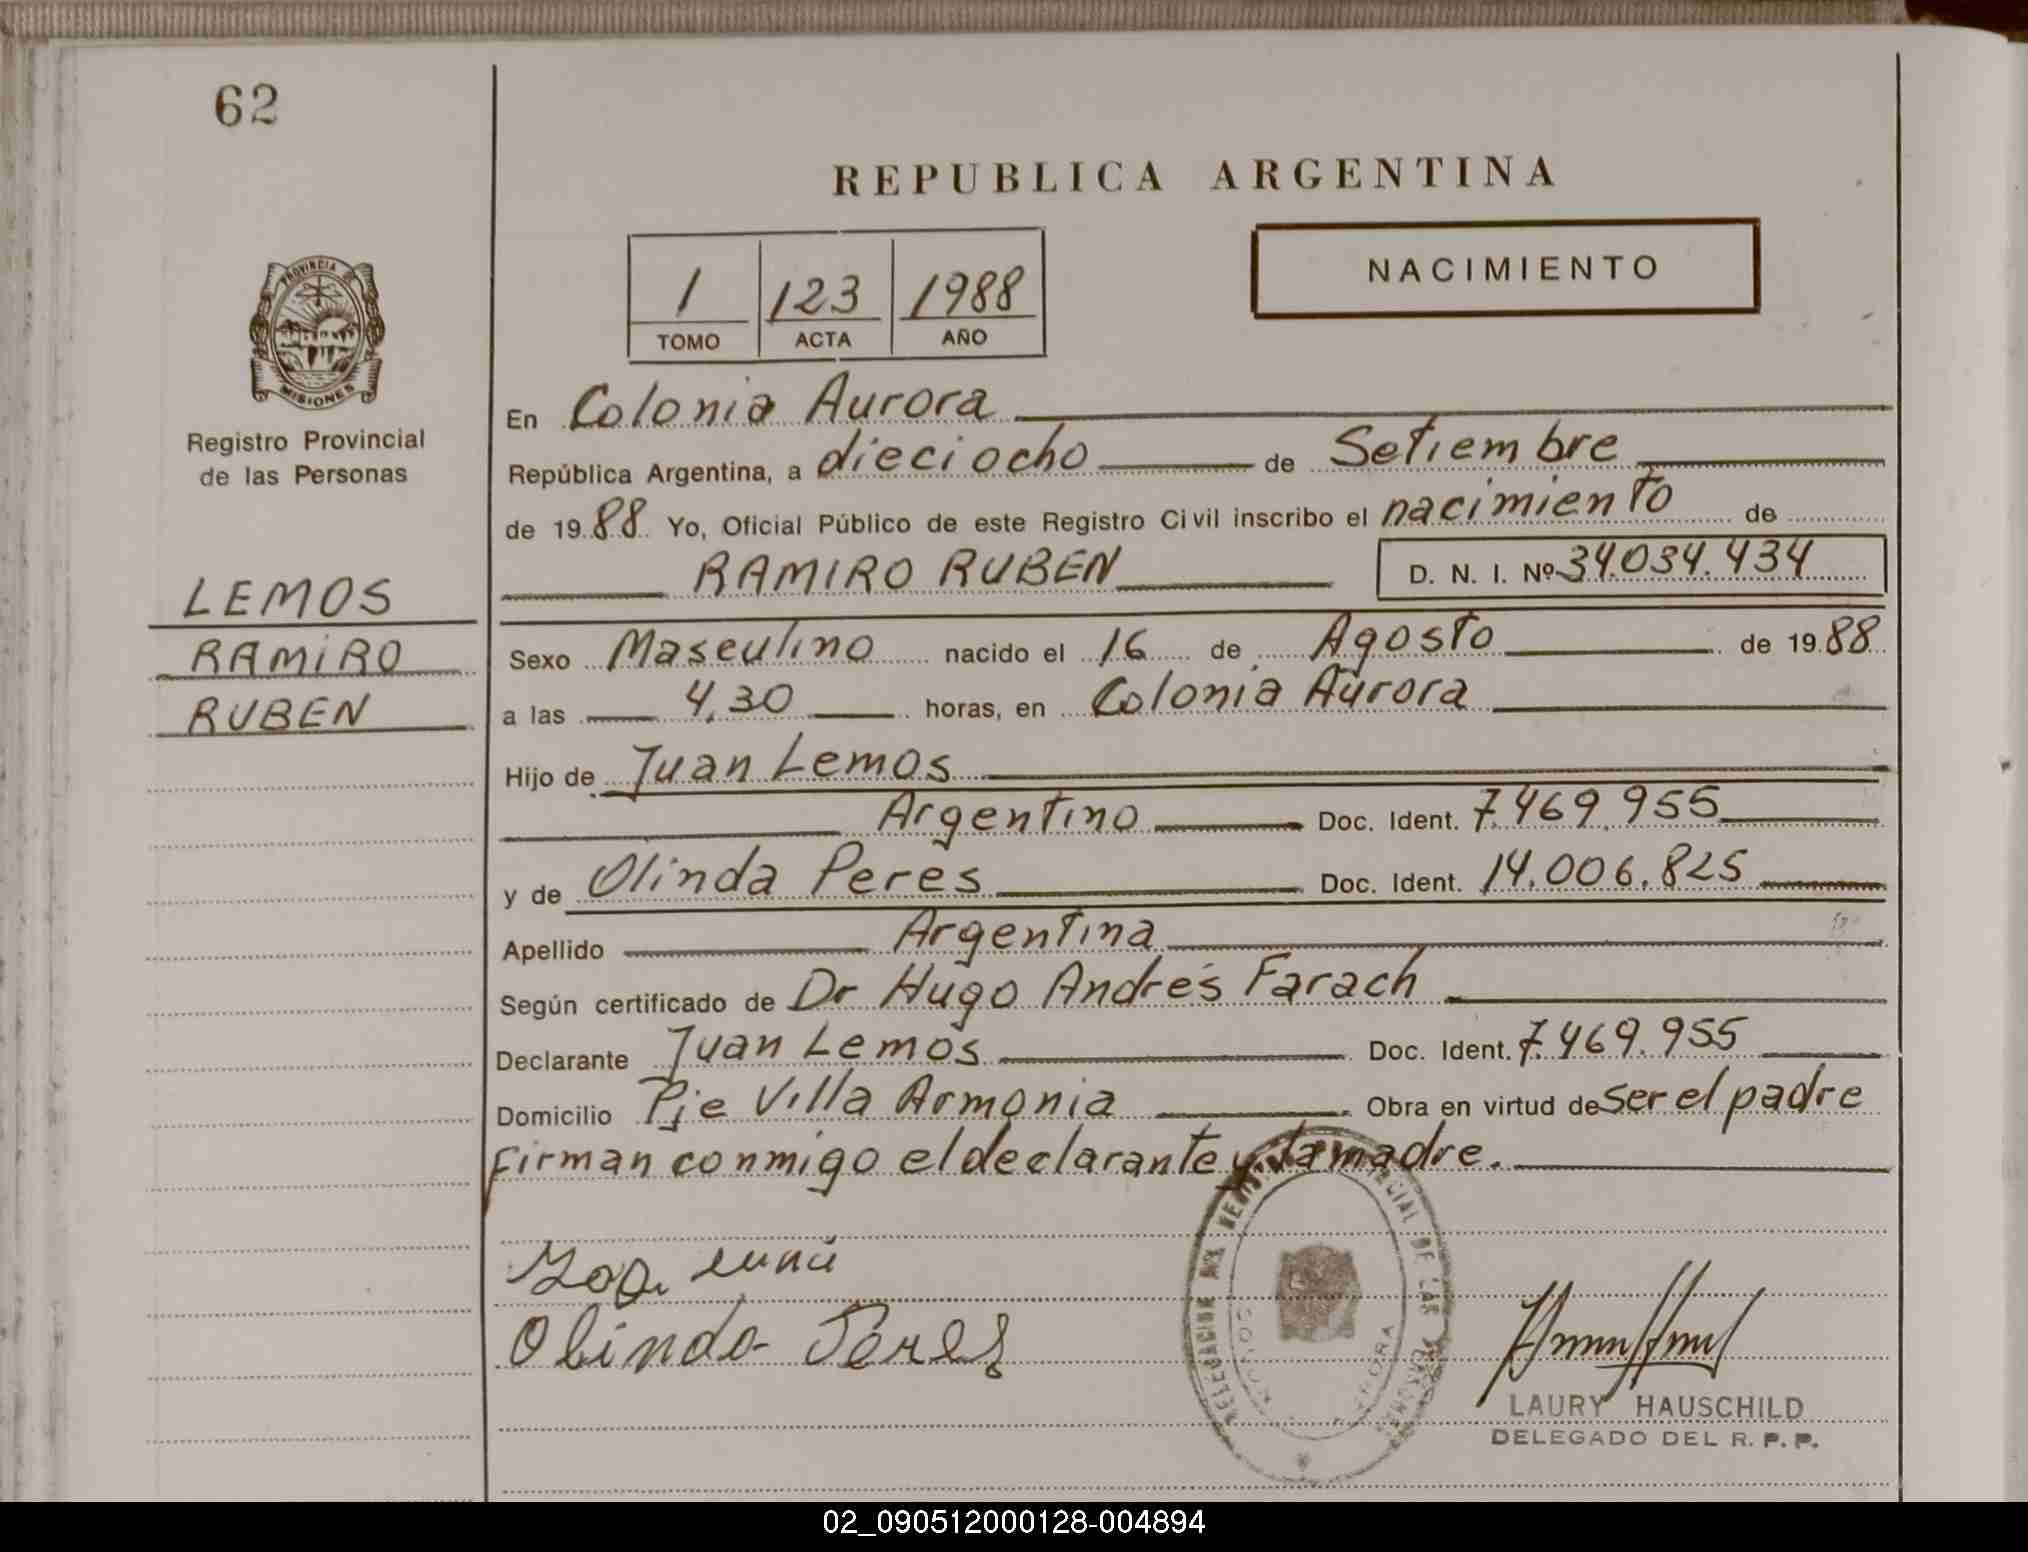 62
REPUBLICA ARGENTINA
1 123 1988
TOMO ACTA AÑO
NACIMIENTO
PROVINCIA DE
MISIONES
Registro Provincial
de las Personas
LEMOS
RAMIRO
RUBEN
En Colonia Aurora
República Argentina, a dieciocho de Setiembre
de 1988 Yo, Oficial Público de este Registro Civil inscribo el nacimiento de
RAMIRO RUBEN D. N. I. Nº 34.034.434
Sexo Masculino nacido el 16 de Agosto de 1988
a las 4,30 horas, en Colonia Aurora
Hijo de Juan Lemos
Argentino Doc. Ident. 7.469.955
y de Olinda Peres Doc. Ident. 14.006.825
Apellido Argentina
Según certificado de Dr Hugo Andrés Farach
Declarante Juan Lemos Doc. Ident. 7.469.955
Domicilio Pje Villa Armonia Obra en virtud de ser el padre
Firman conmigo el declarante y la madre.
Olinda Peres
LAURY HAUSCHILD
DELEGADO DEL R. P. P.
02_090512000128-004894